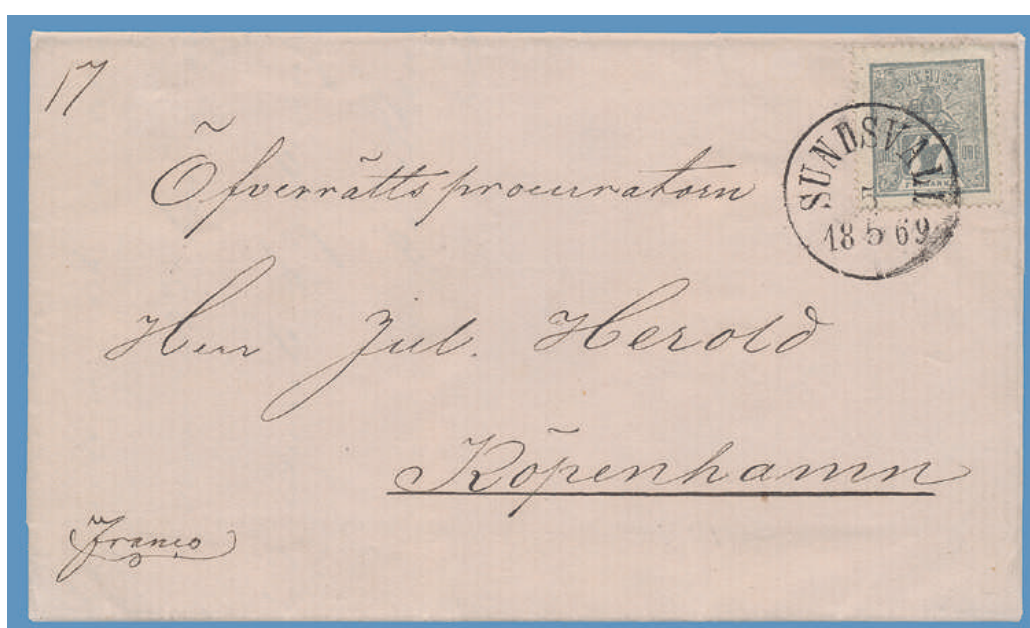 17
SVERIGE
SUNDSVALL
5
18 5 69
Öfverrättsprocuratorn
Herr Jul. Herold
Köpenhamn
Franco